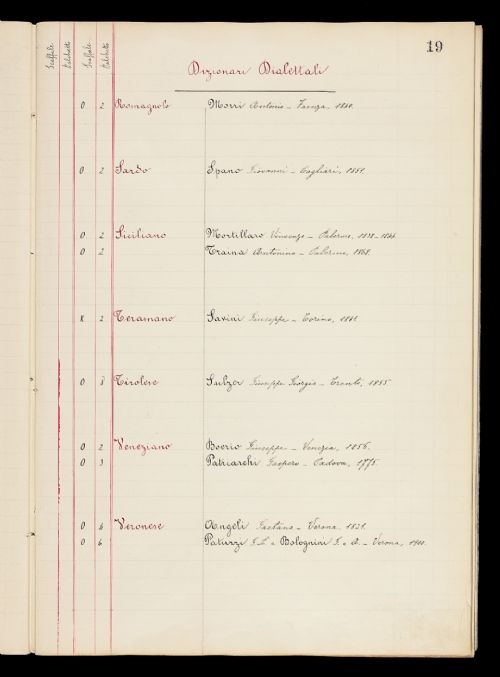 19
Scaffale Palchetto Scaffale Palchetto
Dizionari Dialettali
O 2 Romagnolo Morri Antonio – Faenza, 1840.
O 2 Sardo Spano Giovanni – Cagliari, 1851.
O 2 Siciliano Mortillaro Vincenzo – Palermo, 1838-1844.
O 2 Traina Antonino – Palermo, 1868.
K 2 Teramano Savini Giuseppe – Torino, 1881.
O 8 Tirolese Sulzer Giuseppe Giorgio – Trento, 1855.
O 2 Veneziano Boerio Giuseppe – Venezia, 1856.
O 3 Patriarchi Gasparo – Padova, 1775.
O 6 Veronese Angeli Gaetano – Verona, 1821.
O 6 Patuzzi G. L. e Bolognini G. e A. – Verona, 1900.